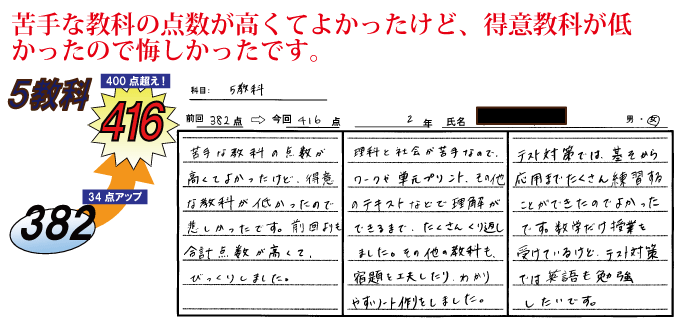 苦手な教科の点数が高くてよかったけど、得意教科が低
かったので悔しかったです。
5教科
400点超え!
416
34点アップ
382
科目: 5教科
前回 382点 ⇨ 今回 416 点 2 年 氏名 男・女
苦手な教科の点数が
高くてよかったけど、得意
な教科が低かったので
悲しかったです。前回よりも
合計点数が高くて、
びっくりしました。
理科と社会が苦手なので、
ワークや単元プリント、その他
のテキストなどで理解が
できるまで、たくさんくり返し
ました。その他の教科も、
宿題を工夫したり、わかり
やすいノート作りをしました。
テスト対策では、基そから
応用までたくさん練習する
ことができたのでよかった
です。数学だけ授業を
受けているけど、テスト対策
では英語も勉強
したいです。